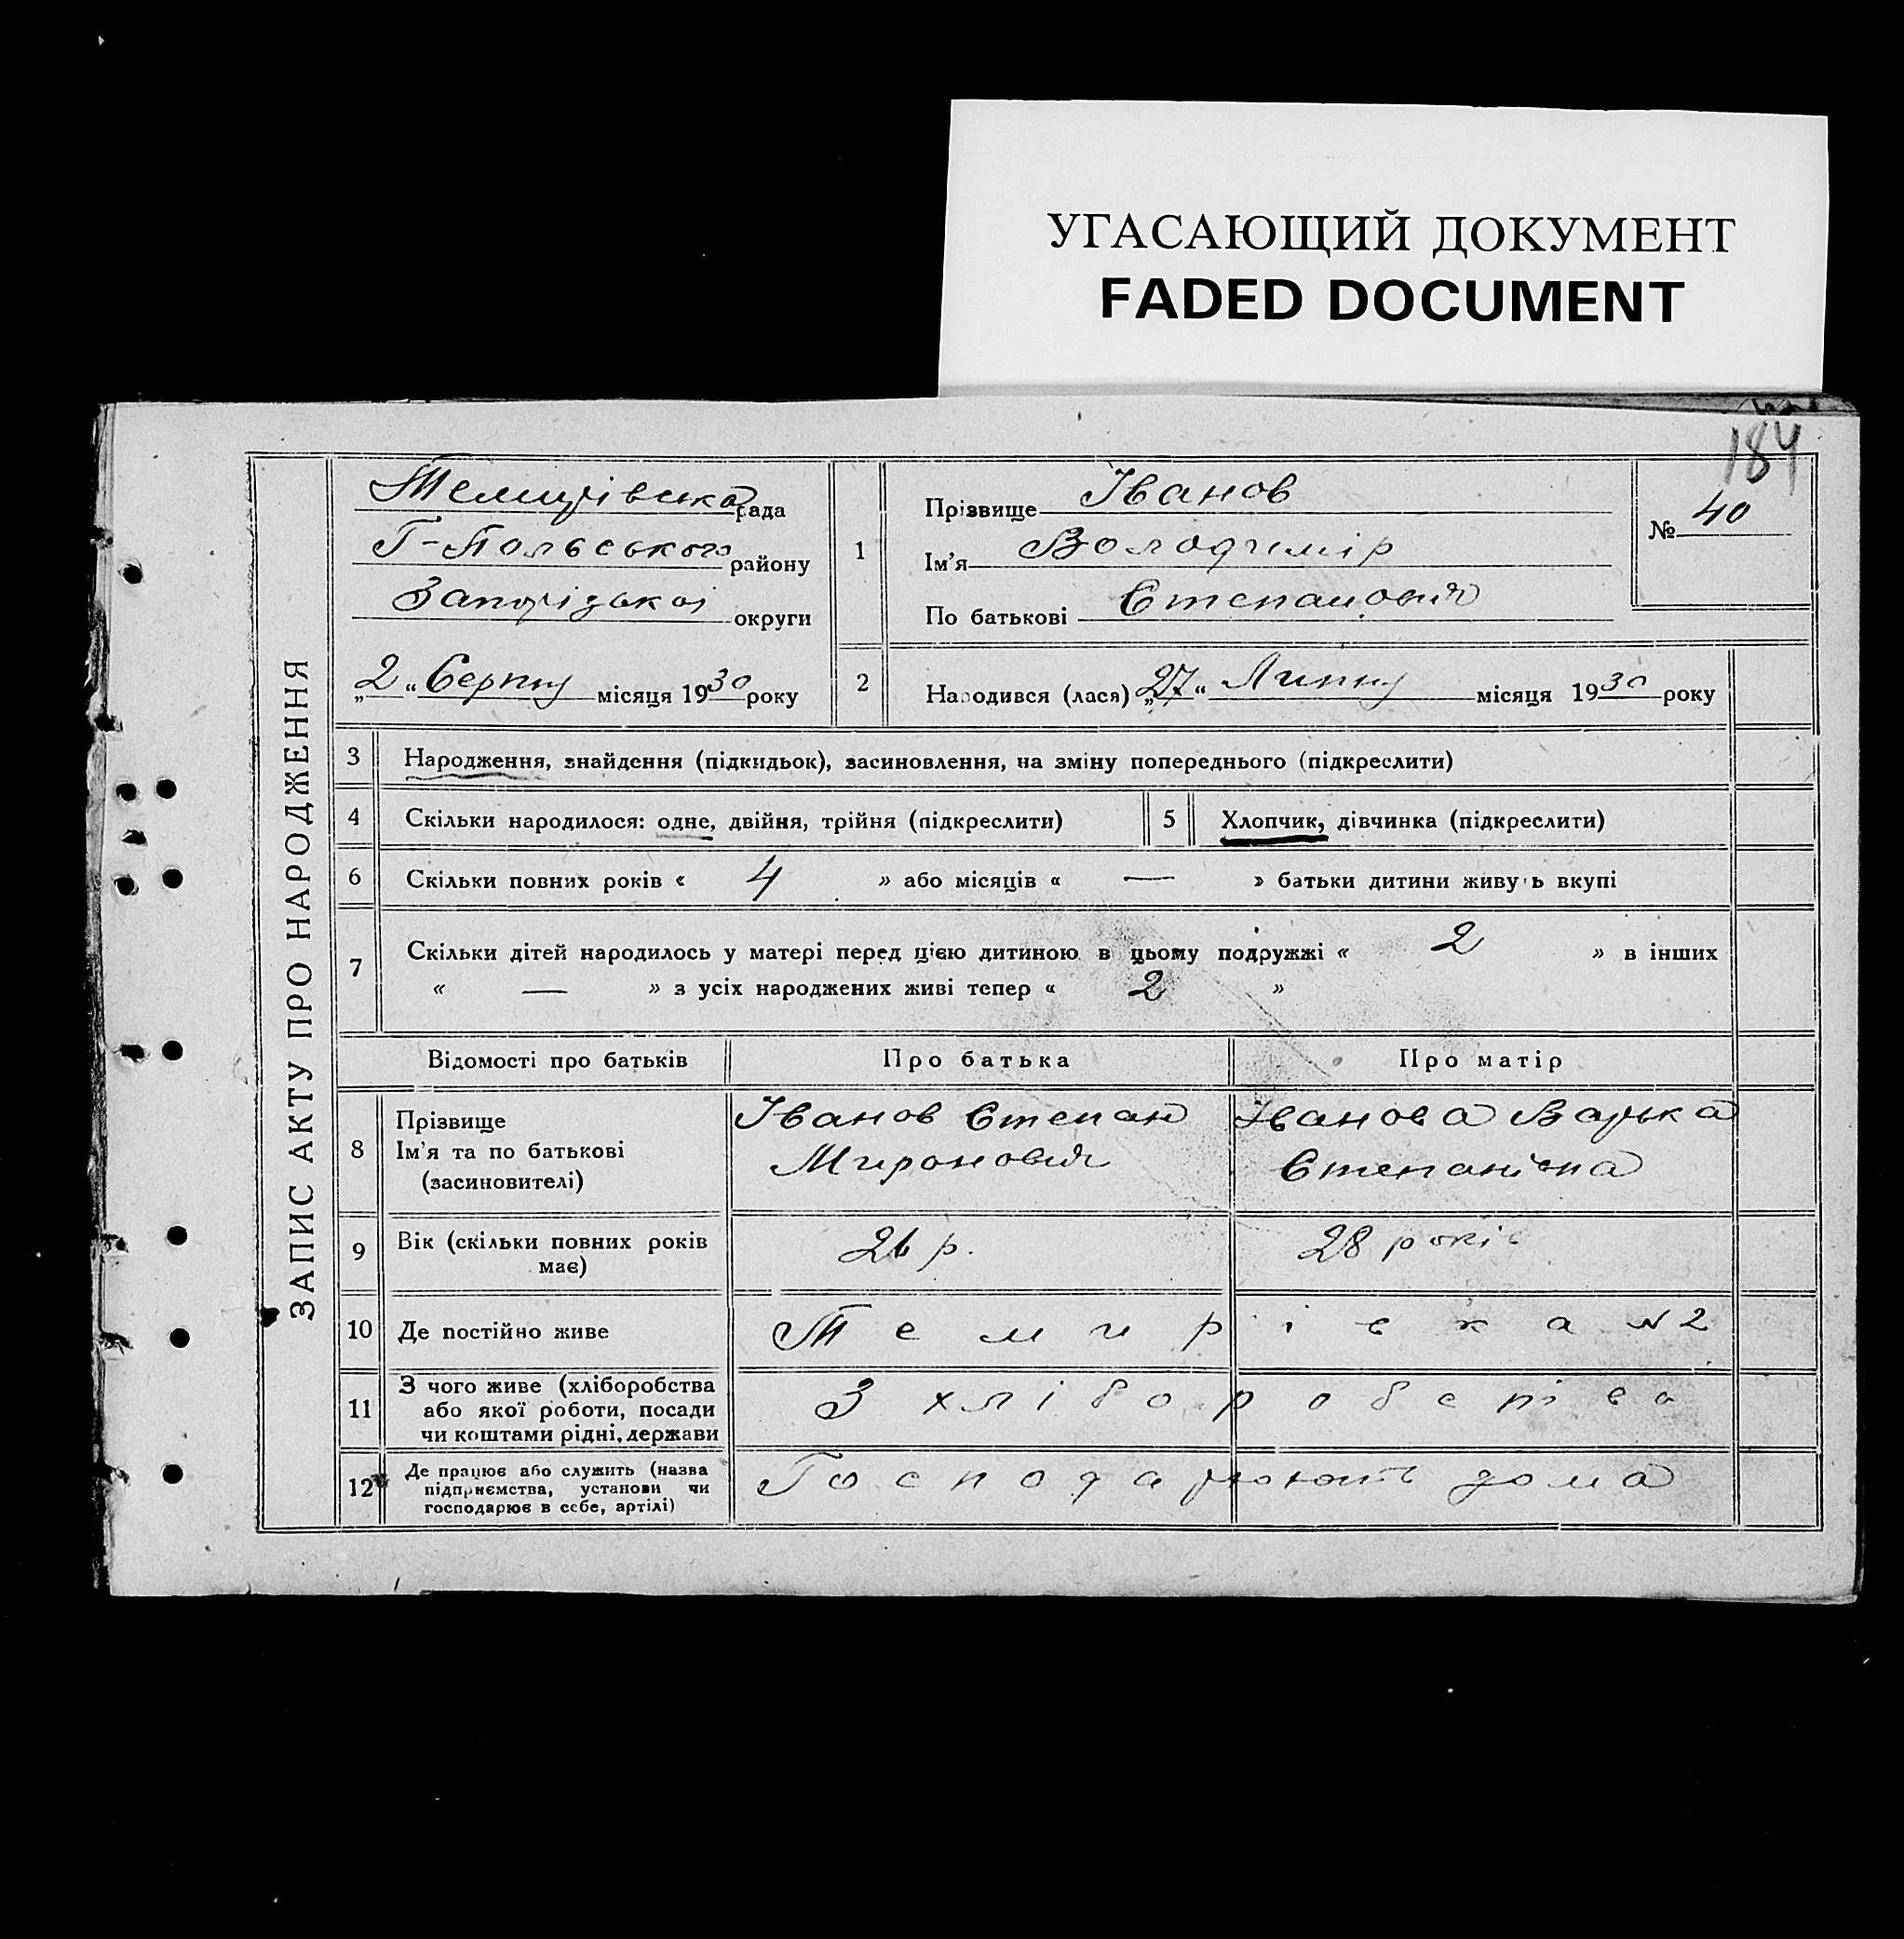 УГАСАЮЩИЙ ДОКУМЕНТ
FADED DOCUMENT
184
ЗАПИС АКТУ ПРО НАРОДЖЕННЯ
Темирівська рада
Г-Польського району
Запорізької округи
„2“ Серпня місяця 1930 року
1
Прізвище Іванов
Ім'я Володимір
По батькові Степанович
№ 40
2 Народився (лася) „27“ Липня місяця 1930 року
3 Народження, знайдення (підкидьок), засиновлення, на зміну попереднього (підкреслити)
4 Скільки народилося: одне, двійня, трійня (підкреслити) 5 Хлопчик, дівчинка (підкреслити)
6 Скільки повних років « 4 » або місяців « — » батьки дитини живуть вкупі
7 Скільки дітей народилось у матері перед цією дитиною в цьому подружжі « 2 » в інших
« — » з усіх народжених живі тепер « 2 »
Відомості про батьків Про батька Про матір
8 Прізвище
Ім'я та по батькові
(засиновителі)
Іванов Степан
Миронович
Іванова Варька
Степанівна
9 Вік (скільки повних років
має)
26 р.
28 років
10 Де постійно живе Темирівка №2
11 З чого живе (хліборобства
або якої роботи, посади
чи коштами рідні, держави
З хліборобства
12 Де працює або служить (назва
підприємства, установи чи
господарює в себе, артілі)
Господарюють дома